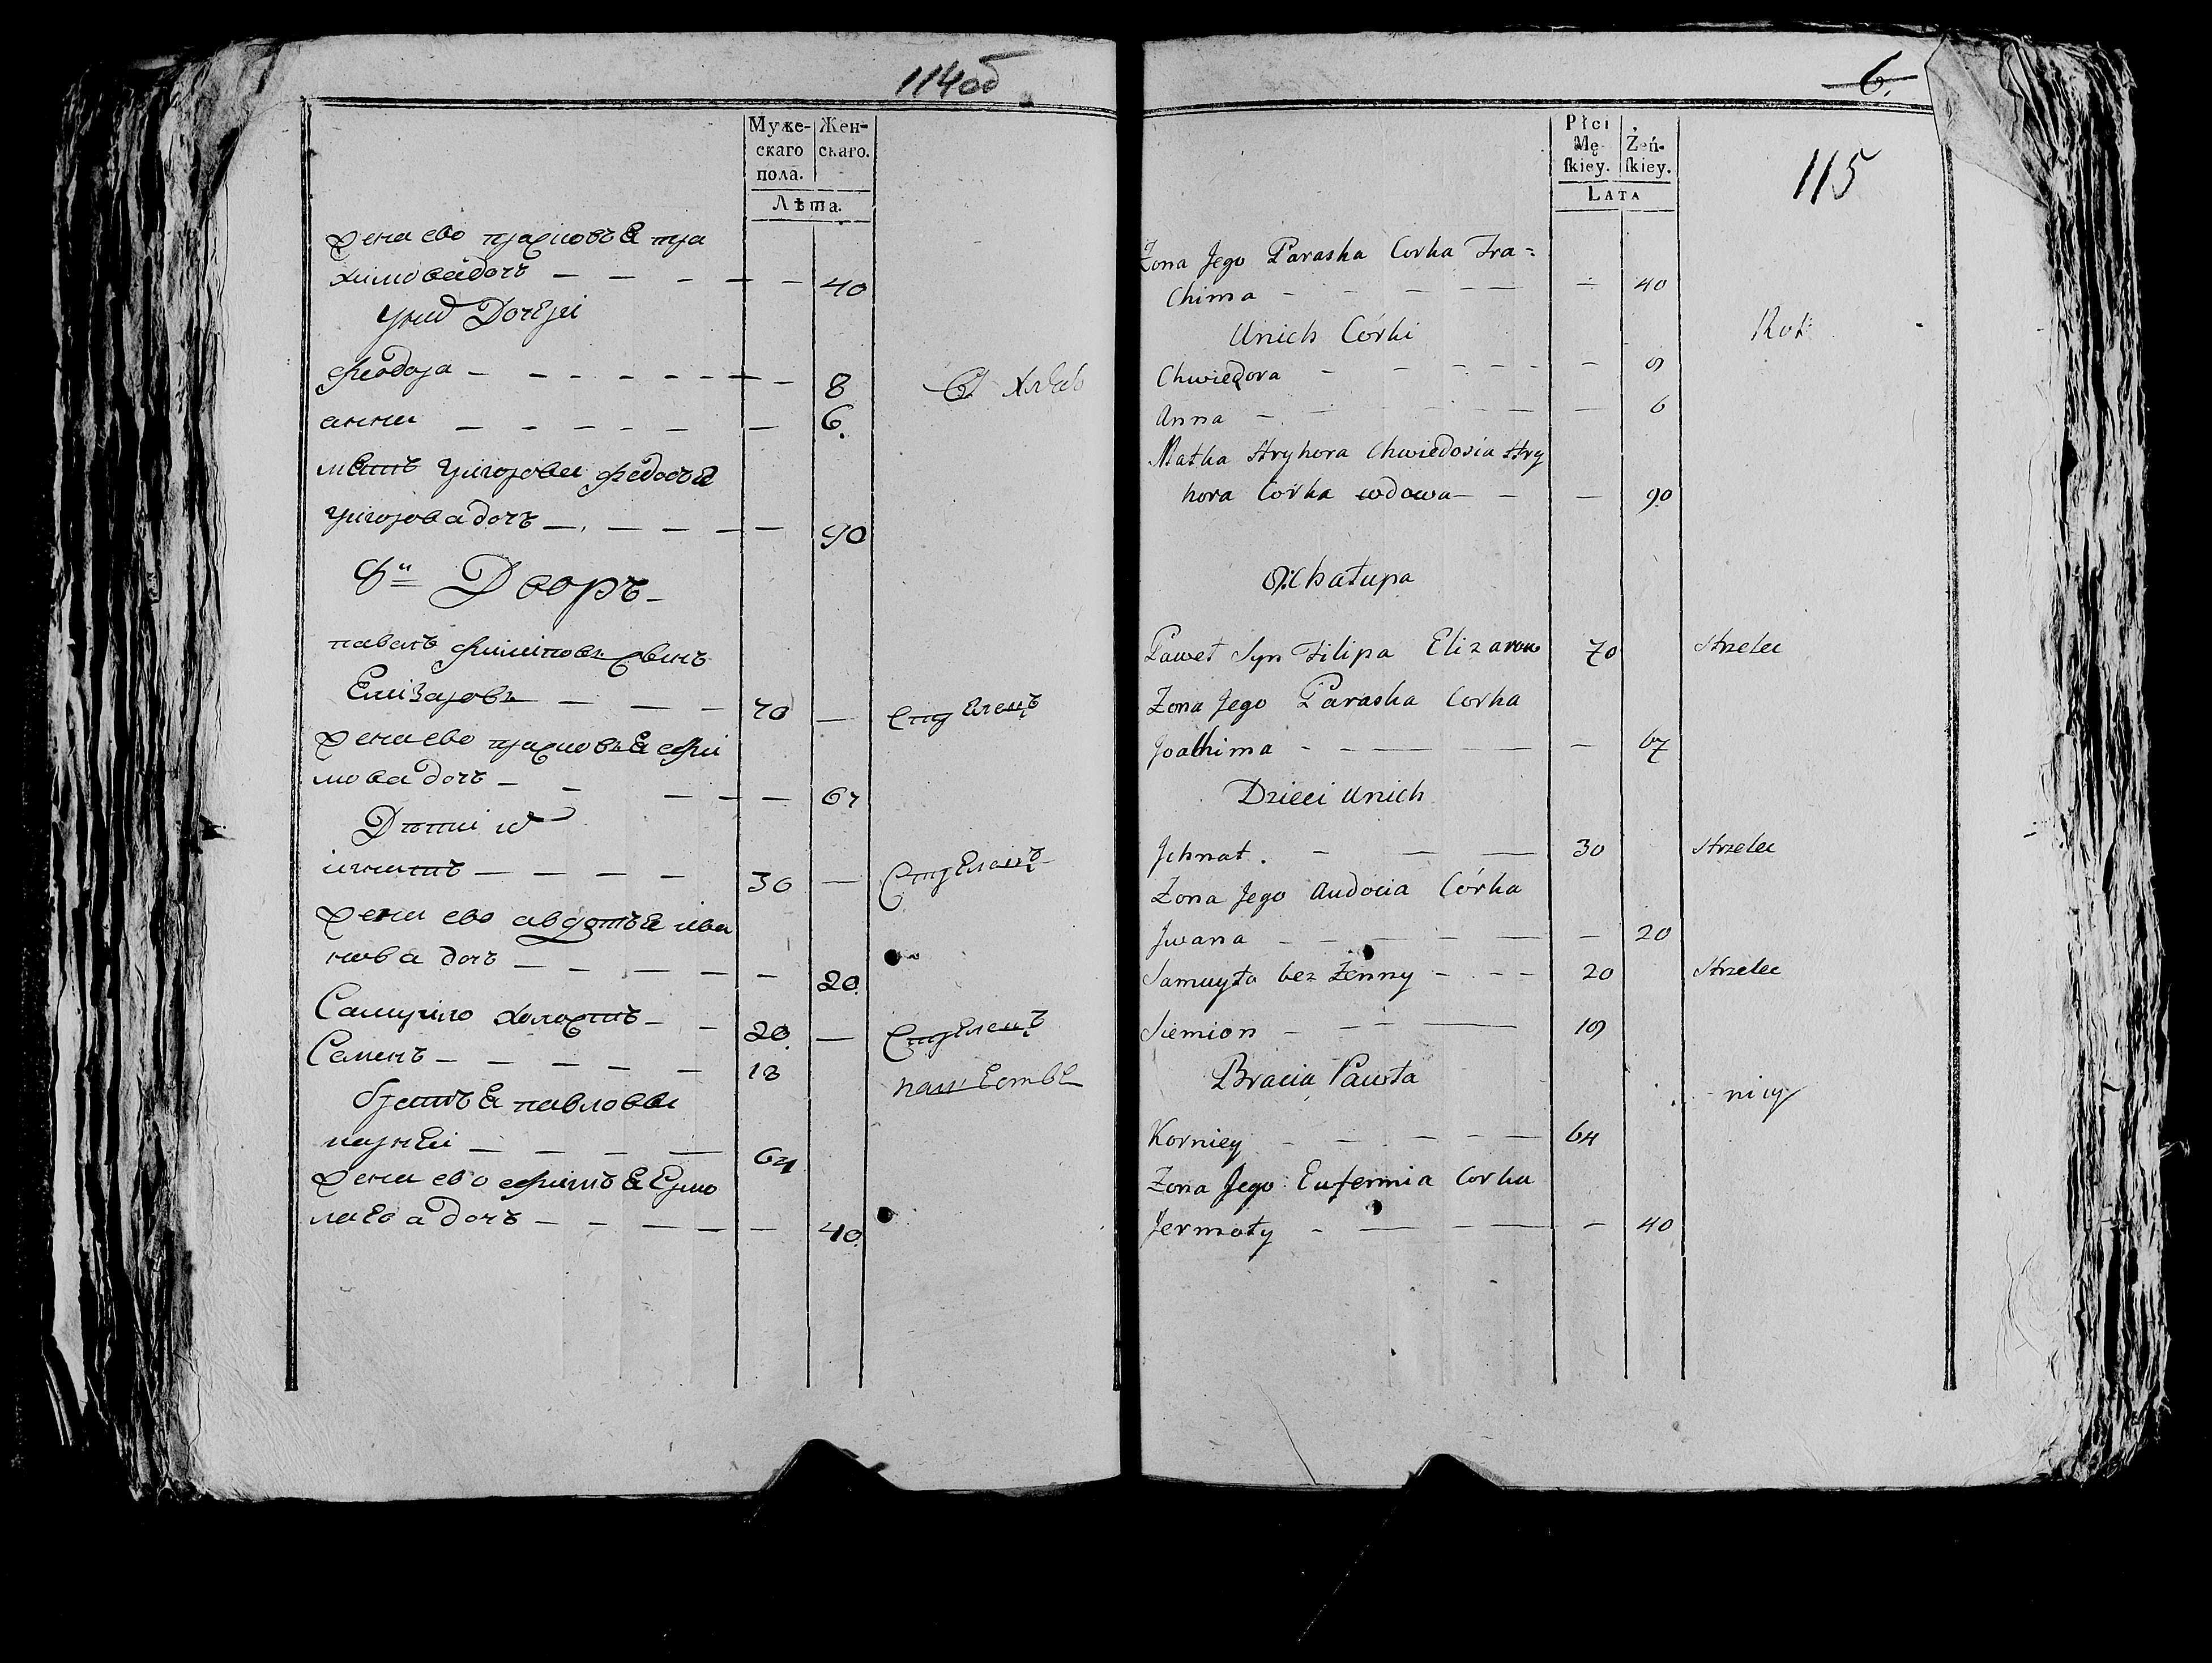 114 об
Муже-
скаго
пола.
Жен-
скаго.
Лѣта.
жена ево прасковья тра
химова доч — — — — — 40
у них дочери
Феодора — — — — — — — 8
анна — — — — — — 6.
мать григорова федосья
григорова доч — — — — — 90
8й Дворъ
павелъ филиповъ сынъ
Елизаровъ — — — 70 — стрелецъ
жена ево прасковья
мова доч — — — — — 67
Дѣти их
игнатъ — — — — 30 — Стрелецъ
жена ево авдотья ива
нова доч — — — — — — 20.
Самуило холостъ — — 20. — Стрелецъ
Семенъ — — — — — 18
братья павловы
карней — — — — 64
жена ево Ермо
лаева доч — — — — — 40.
6.
115
Płci
Mę-
ſkiey.
Żeń-
ſkiey.
LATA
Zona Jego Paraska Corka Tra=
Chima — — — — — — 40
Unich Córki
Chwiedora — — — — — — 9
Anna — — — — — 6
Matka Hryhora Chwiedosia Hry
hora Corka wdowa — — — 90
9: Chałupa
Paweł Syn Filipa Elizarow 70 Strzelec
Zona Jego Paraska Corka
Joachima — — — — — — 67
Dzieci Unich
Jhnat. — — — 30 Strzelec
Zona Jego Audocia Córka
Jwana — — — — — — — 20
Samuyło bez Zenny — — — 20 Strzelec
Siemion — — — — 19
Bracia Pawła
Korniey — — — — — 64
Zona Jego Eufemia Corka
Jermoły — — — — — 40